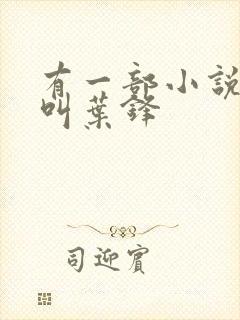 有一部小說
叫葉鋒
司迎賓